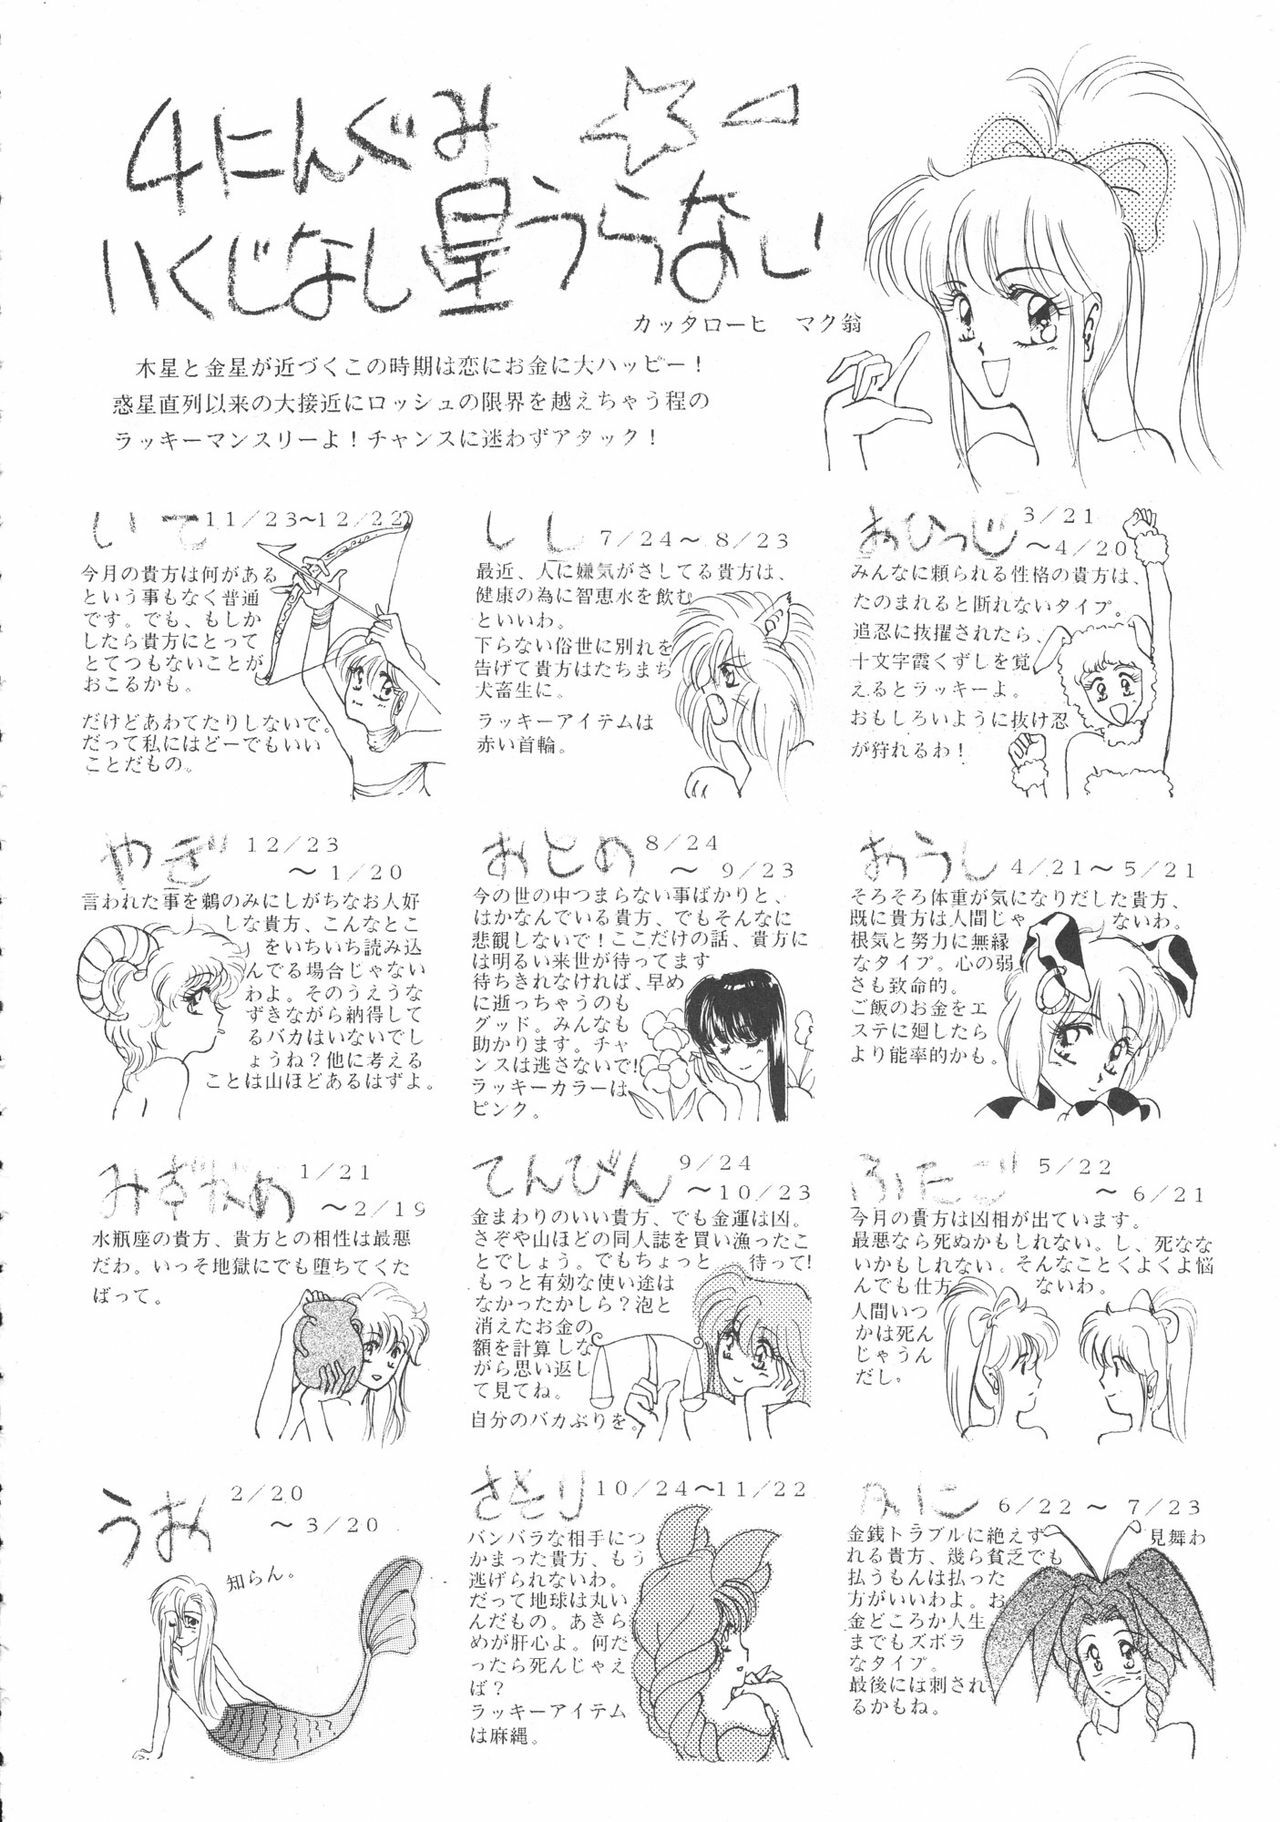 4にんぐみ
いくじなし星うらない
カッタローヒ　マク翁
木星と金星が近づくこの時期は恋にお金に大ハッピー！
惑星直列以来の大接近にロッシュの限界を越えちゃう程の
ラッキーマンスリーよ！チャンスに迷わずアタック！
いて 11/23～12/22
今月の貴方は何がある
という事もなく普通
です。でも、もしか
したら貴方にとって
とてつもないことが
おこるかも。
だけどあわてたりしないで。
だって私にはどーでもいい
ことだもの。
しし 7/24～8/23
最近、人に嫌気がさしてる貴方は、
健康の為に智恵水を飲む
といいわ。
下らない俗世に別れを
告げて貴方はたちまち
犬畜生に。
ラッキーアイテムは
赤い首輪。
おひつじ 3/21
～4/20
みんなに頼られる性格の貴方は、
たのまれると断れないタイプ。
追忍に抜擢されたら、
十文字霞くずしを覚
えるとラッキーよ。
おもしろいように抜け忍
が狩れるわ！
やぎ 12/23
～1/20
言われた事を鵜のみにしがちなお人好
しな貴方、こんなとこ
をいちいち読み込
んでる場合じゃない
わよ。そのうえうな
ずきながら納得して
るバカはいないでし
ょうね？他に考える
ことは山ほどあるはずよ。
おとめ 8/24
～9/23
今の世の中つまらない事ばかりと、
はかなんでいる貴方、でもそんなに
悲観しないで！ここだけの話、貴方に
は明るい来世が待ってます
待ちきれなければ、早め
に逝っちゃうのも
グッド。みんなも
助かります。チャ
ンスは逃さないで！
ラッキーカラーは
ピンク。
おうし 4/21～5/21
そろそろ体重が気になりだした貴方、
既に貴方は人間じゃないわ。
根気と努力に無縁
なタイプ。心の弱
さも致命的。
ご飯のお金をエ
ステに廻したら
より能率的かも。
みずがめ 1/21
～2/19
水瓶座の貴方、貴方との相性は最悪
だわ。いっそ地獄にでも堕ちてくた
ばって。
てんびん 9/24
～10/23
金まわりのいい貴方、でも金運は凶。
さぞや山ほどの同人誌を買い漁ったこ
とでしょう。でもちょっと待って！
もっと有効な使い途は
なかったかしら？泡と
消えたお金の
額を計算しな
がら思い返し
て見てね。
自分のバカぶりを。
ふたご 5/22
～6/21
今月の貴方は凶相が出ています。
最悪なら死ぬかもしれない。し、死なな
いかもしれない。そんなことくよくよ悩
んでも仕方ないわ。
人間いつ
かは死ん
じゃうん
だし。
うお 2/20
～3/20
知らん。
さそり 10/24～11/22
バンバラな相手につ
かまった貴方、もう
逃げられないわ。
だって地球は丸い
んだもの。あきら
めが肝心よ。何だ
ったら死んじゃえ
ば？
ラッキーアイテム
は麻縄。
かに 6/22～7/23
金銭トラブルに絶えず見舞わ
れる貴方、幾ら貧乏でも
払うもんは払った
方がいいわよ。お
金どころか人生
までもズボラ
なタイプ。
最後には刺され
るかもね。